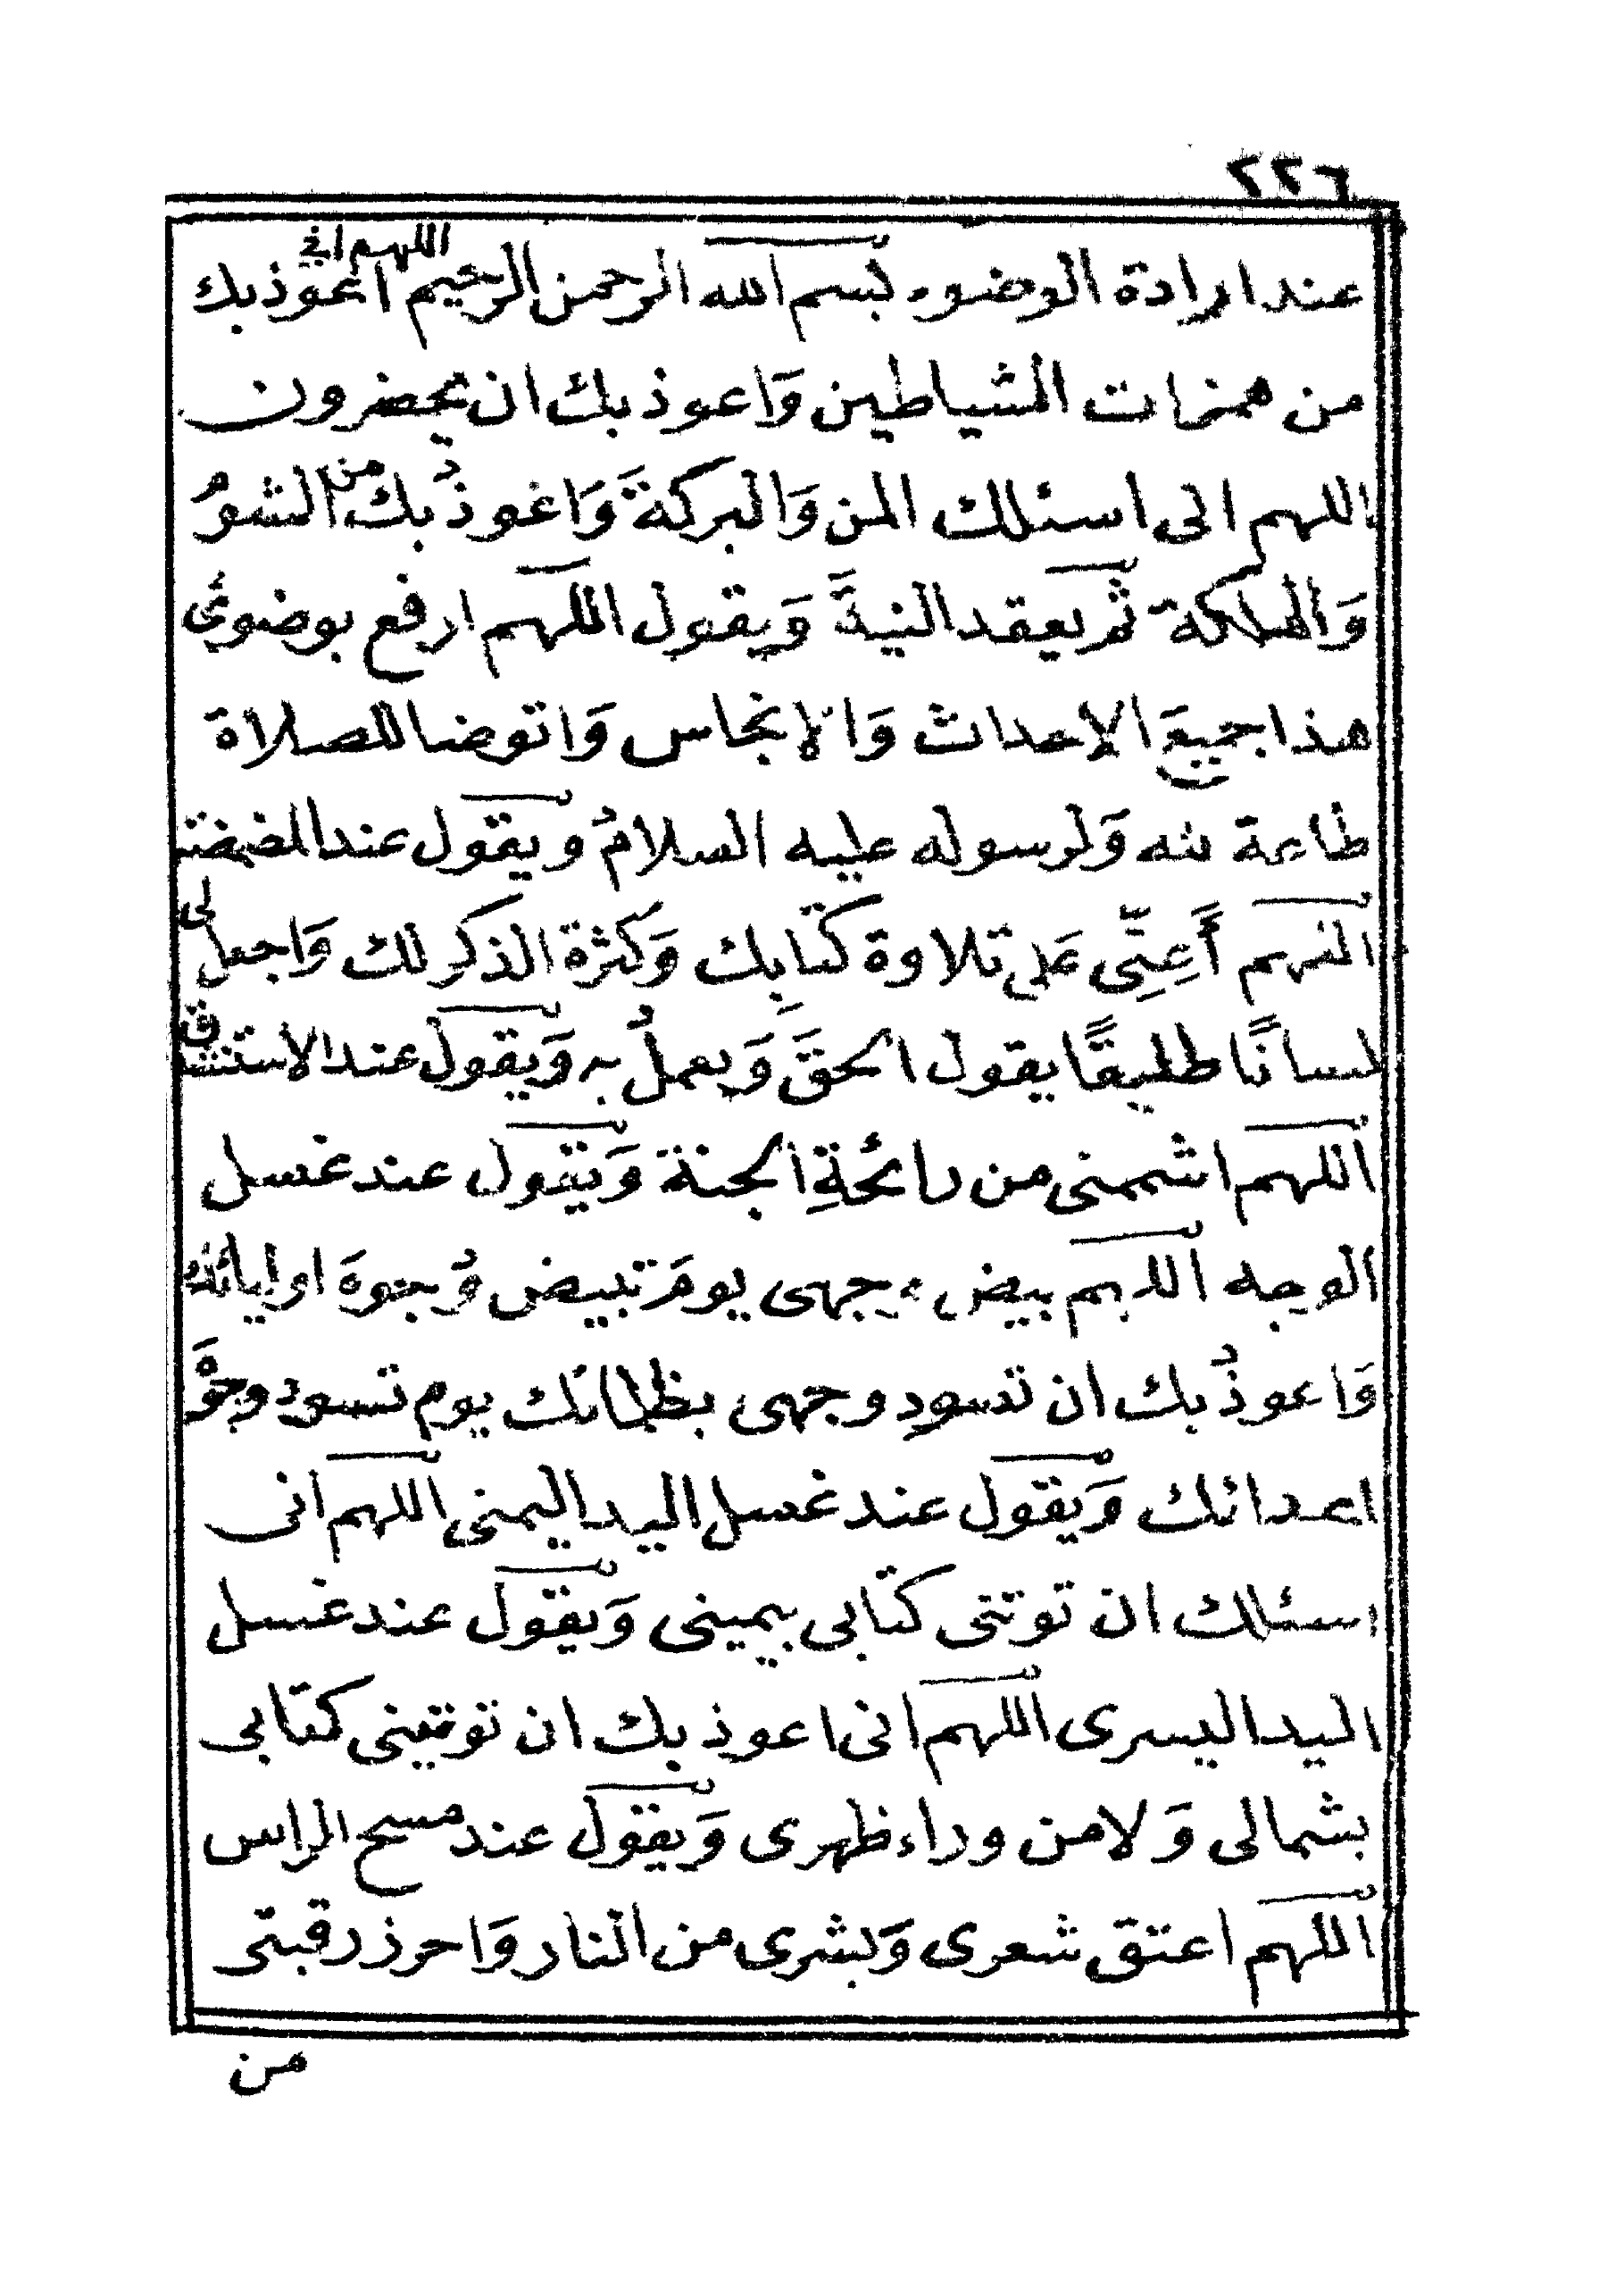 ٢٢٦
عند ارادة الوضوء بسم الله الرحمن الرحيم اللهم اني اعوذ بك
من همزات الشياطين وَاعوذ بك ان يحضرون
اللهم انى اسئلك المن وَالبركةَ وَاعوذُ بك من الشومُ
وَالهلكة ثم يعقد النيةَ وَيقول اللهم ارفع بوضوئي
هذا جميعَ الاحداث وَالانجاس وَاتوضا للصلاة
طاعة لله وَلرسوله عليه السلامُ ويقول عند المضمضة
اللهم أَعِنِّى عَلى تلاوة كتابِك وَكثرة الذكر لك وَاجعل لى
لسانًا طليقًا يقول الحقَ وَيعملُ به وَيقول عند الاستنشاق
اللهم اشممنى من رائحةِ الجنة وَيقول عند غسل
الوجه اللهم بيض وجهى يومَ تبيض وُجوهَ اوليائك
وَاعوذُ بك ان تسود وجهى بظلماتك يوم تسود وجوْهَ
اعدائك وَيقول عند غسل اليد اليمنى اللهم انى
اسئلك ان توتنى كتابى بيمينى وَيقول عند غسل
اليد اليسرى اللهم انى اعوذ بك ان توتينى كتابى
بشمالى وَلا من وراء ظهرى وَيقول عند مسح الراس
اللهم اعتق شعرى وَبشرى من النار وَاحرز رقبتى
من